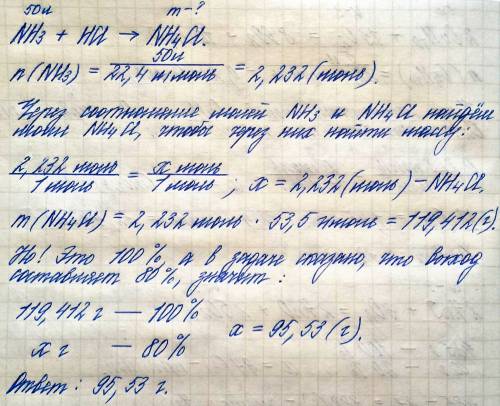 50л m-?
NH3 + HCl → NH4Cl.
n(NH3) = 50л / 22,4 л/моль = 2,232 (моль).
Через соотношение молей NH3 и NH4Cl найдём
моли NH4Cl, чтобы через них найти массу:
2,232 моль / 1 моль = x моль / 1 моль ; x = 2,232 (моль) – NH4Cl.
m(NH4Cl) = 2,232 моль · 53,5 г/моль = 119,412 (г).
Но! Это 100%, а в задаче сказано, что выход
составляет 80%, значит:
119,412 г — 100%
x г — 80%
x = 95,53 (г).
Ответ: 95,53 г.